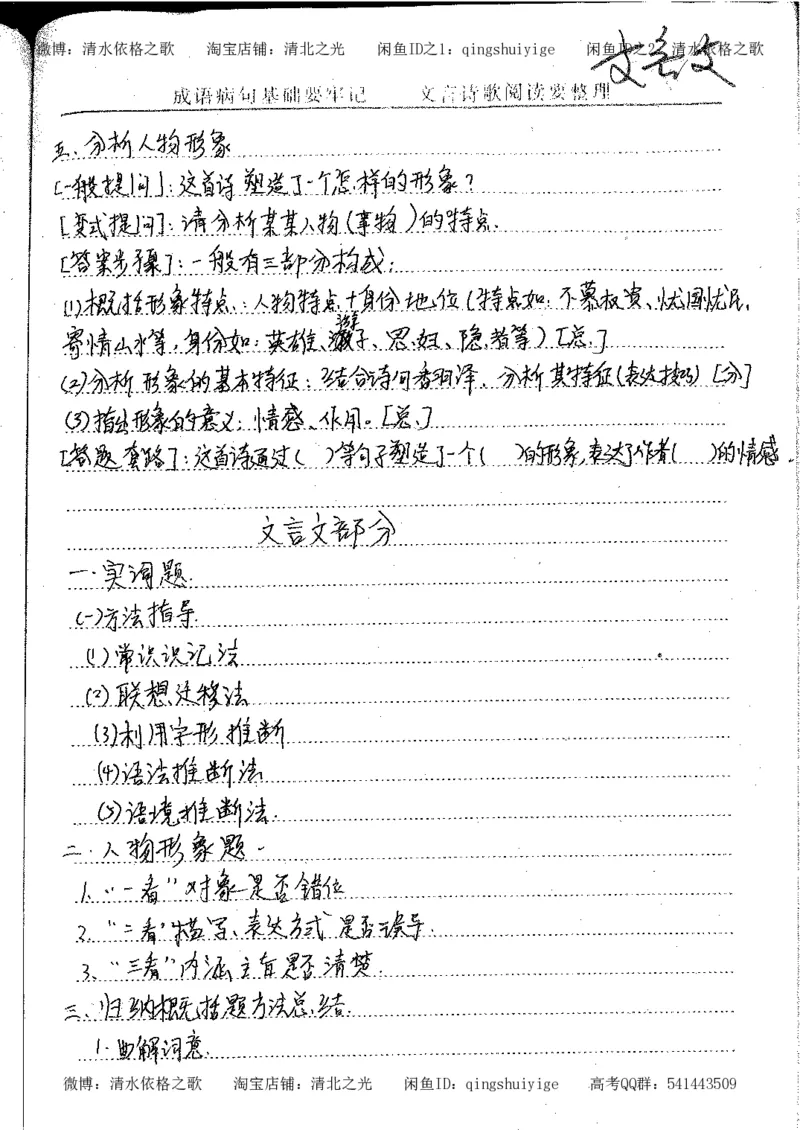 微博：清水依格之歌 淘宝店铺：清北之光 闲鱼ID之1：qingshuiyige 闲鱼ID之2：清水依格之歌
文言文
成语病句基础要牢记 文言诗歌阅读要整理
五、分析人物形象
[一般提问]：这首诗塑造了一个怎样的形象？
[变式提问]：请分析某某人物(事物)的特点.
[答案步骤]：一般有三部分构成：
(1)概括形象特点：人物特点+身份地位(特点如：不慕权贵、忧国忧民、
寄情山水等，身份如：英雄、游子、思妇、隐者等)[总]
(2)分析形象的基本特征：结合诗句香羽泽，分析其特征(表达技巧)[分]
(3)指出形象的意义：情感、作用。[总]
[答题套路]：这首诗通过( )等句子塑造了一个( )的形象,表达了作者( )的情感.
文言文部分
一.实词题
(一)方法指导
(1)常识识记法
(2)联想迁移法
(3)利用字形推断
(4)语法推断法
(5)语境推断法.
二.人物形象题
1."一看"对象是否错位
2."二看"描写、表达方式是否误导.
3."三看"内涵主旨是否清楚.
三、归纳概括题方法总结.
1.曲解词意.
微博：清水依格之歌 淘宝店铺：清北之光 闲鱼ID：qingshuiyige 高考QQ群：541443509